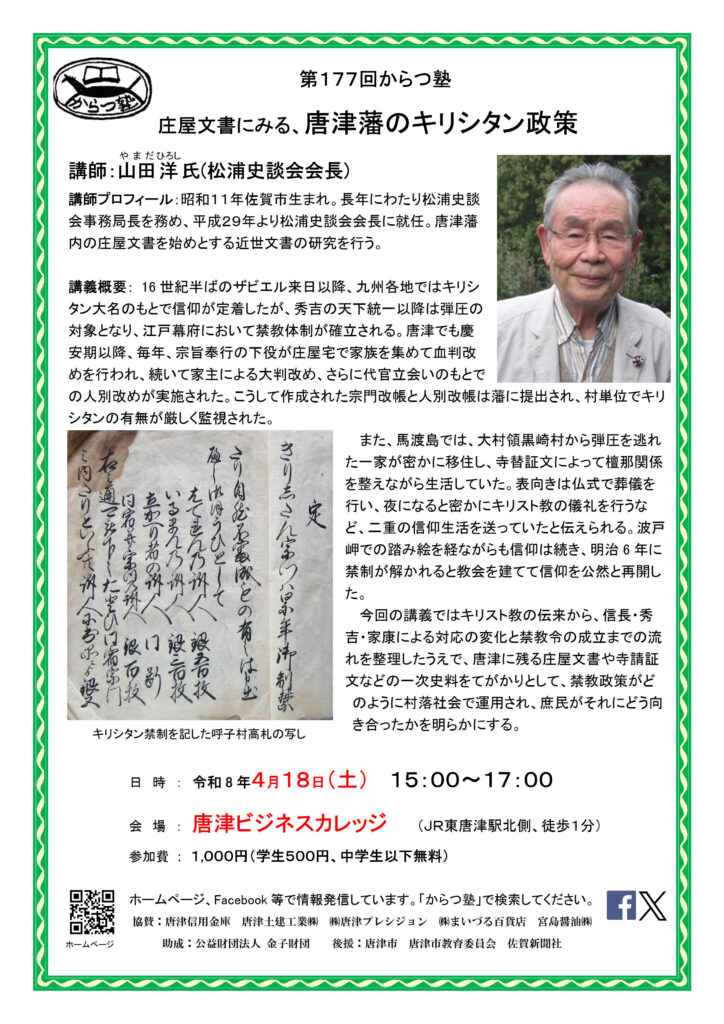 からつ塾
第177回からつ塾
庄屋文書にみる、唐津藩のキリシタン政策
やまだひろし
講師：山田洋氏(松浦史談会会長)
講師プロフィール：昭和11年佐賀市生まれ。長年にわたり松浦史談
会事務局長を務め、平成29年より松浦史談会会長に就任。唐津藩
内の庄屋文書を始めとする近世文書の研究を行う。
講義概要： 16世紀半ばのザビエル来日以降、九州各地ではキリシ
タン大名のもとで信仰が定着したが、秀吉の天下統一以降は弾圧の
対象となり、江戸幕府において禁教体制が確立される。唐津でも慶
安期以降、毎年、宗旨奉行の下役が庄屋宅で家族を集めて血判改
めを行われ、続いて家主による大判改め、さらに代官立会いのもとで
の人別改めが実施された。こうして作成された宗門改帳と人別改帳は藩に提出され、村単位でキリ
シタンの有無が厳しく監視された。
定
きりしたん宗門
キリシタン禁制を記した呼子村高札の写し
また、馬渡島では、大村領黒崎村から弾圧を逃れ
た一家が密かに移住し、寺替証文によって檀那関係
を整えながら生活していた。表向きは仏式で葬儀を
行い、夜になると密かにキリスト教の儀礼を行うな
ど、二重の信仰生活を送っていたと伝えられる。波戸
岬での踏み絵を経ながらも信仰は続き、明治6年に
禁制が解かれると教会を建てて信仰を公然と再開し
た。
今回の講義ではキリスト教の伝来から、信長・秀
吉・家康による対応の変化と禁教令の成立までの流
れを整理したうえで、唐津に残る庄屋文書や寺請証
文などの一次史料をてがかりとして、禁教政策がど
のように村落社会で運用され、庶民がそれにどう向
き合ったかを明らかにする。
日 時 ： 令和8年4月18日(土) 15:00～17:00
会 場 ： 唐津ビジネスカレッジ （JR東唐津駅北側、徒歩1分）
参加費 ： 1,000円(学生500円、中学生以下無料)
ホームページ、Facebook等で情報発信しています。「からつ塾」で検索してください。
協賛：唐津信用金庫 唐津土建工業㈱ ㈱唐津プレシジョン ㈱まいづる百貨店 宮島醤油㈱
ホームページ
助成：公益財団法人 金子財団 後援：唐津市 唐津市教育委員会 佐賀新聞社